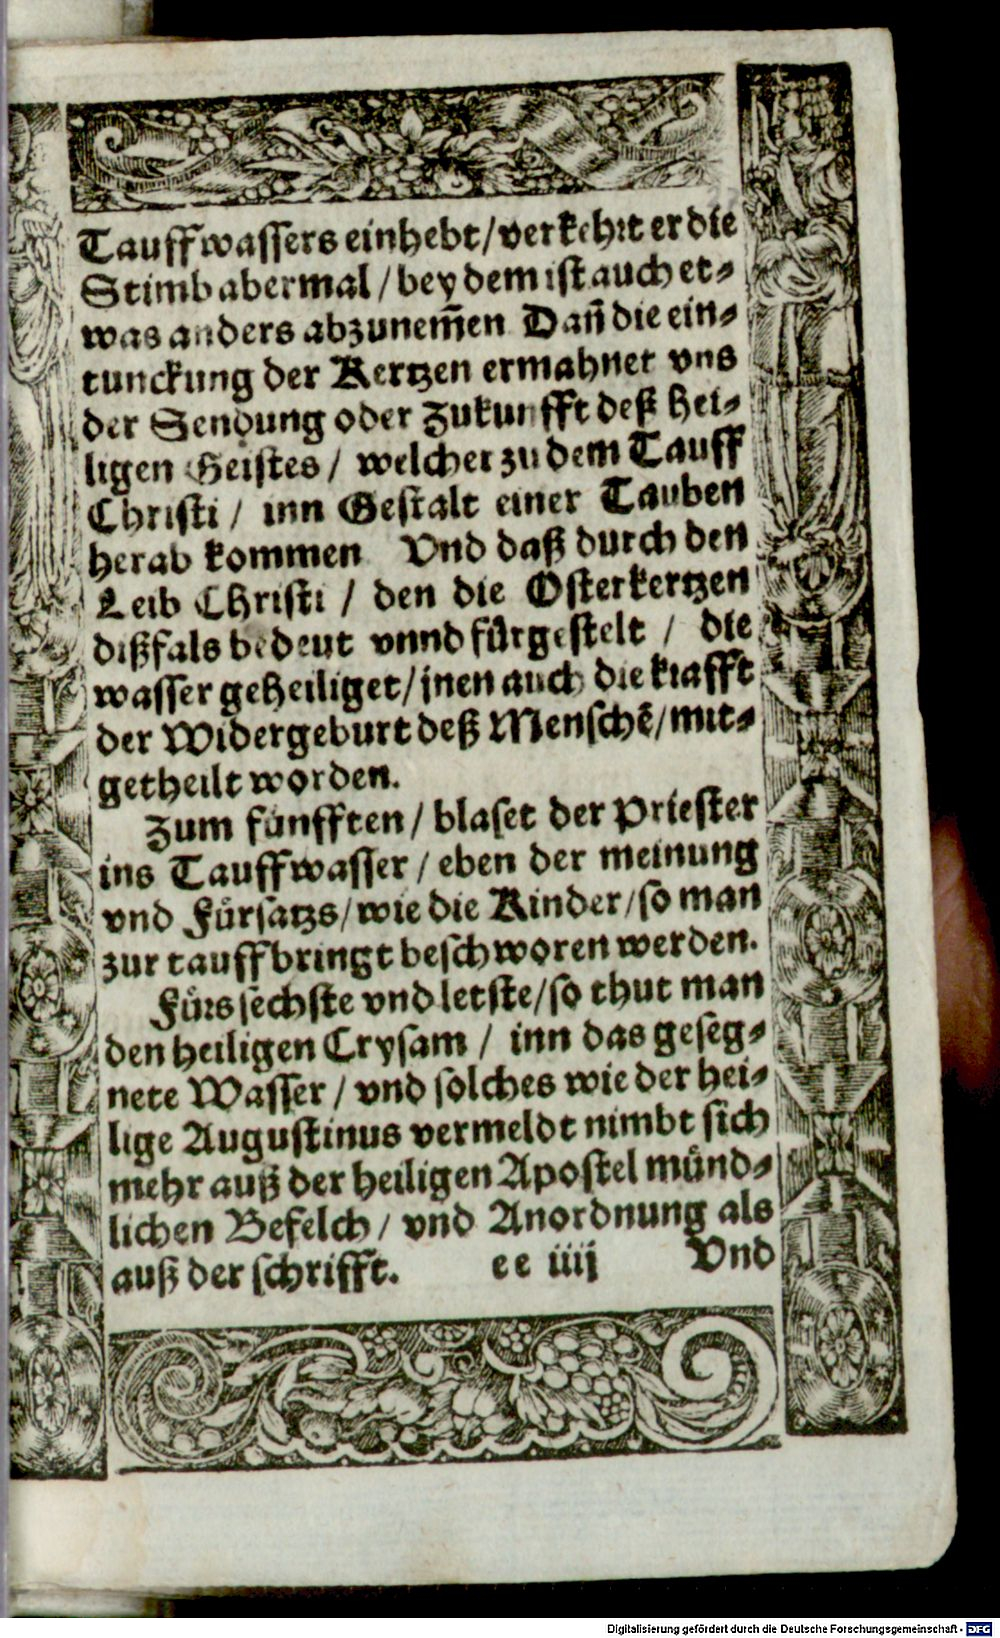 Tauffwassers einhebt/ verkehrt er die
Stimb abermal/ bey dem ist auch et-
was anders abzunem̄en Dañ die ein-
tunckung der Kertzen ermahnet vns
der Sendung oder Zukunfft deß Hei-
ligen Geistes/ welcher zu dem Tauff
Christi/ inn Gestalt einer Tauben
herab kommen Vnd daß durch den
Leib Christi/ den die Osterkertzen
dißfals bedeut vnnd fürgestelt/ die
wasser geheiliget/ jnen auch die krafft
der Widergeburt deß Menschē/ mit-
getheilt worden.
Zum fünfften/ blaset der Priester
ins Tauffwasser/ eben der meinung
vnd Fürsatzs/ wie die Kinder/ so man
zur tauff bringt beschworen werden.
Fürs sechste vnd letste/ so thut man
den heiligen Crysam/ inn das geseg-
nete Wasser/ vnd solches wie der hei-
lige Augustinus vermeldt nimbt sich
mehr auß der heiligen Apostel münd-
lichen Befelch/ vnd Anordnung als
auß der schrifft. ee iiij Vnd
Digitalisierung gefördert durch die Deutsche Forschungsgemeinschaft - DFG